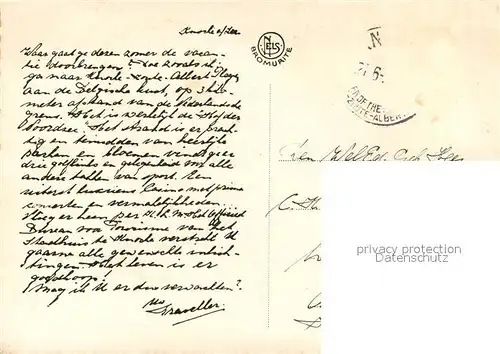 Knocke a/Zee
Waar gaat ge dezen zomer de vacan-
tie doorbrengen? Doe zooals ik:
ga naar Knocke-Zoute-Albert Plage
aan de Belgische kust, op 3 kilo-
meter afstand van de Nederlandsche
grens. Het is werkelijk de "Hof der
Noordzee". Het strand is er prach-
tig en temidden van heerlijke
parken en bloemen vindt ge er
drie golflinks en gelegenheid voor alle
andere takken van sport. Een
uiterst luxueus Casino met prima
concerten en vermakelijkheden...
Vlieg er heen per K.L.M. Het Officieel
Bureau voor Toerisme van het
Stadhuis te Knocke verstrekt U
gaarne alle gewenschte inlich-
tingen. Het leven is er
goedkoop!
Mag ik U er dus verwachten?
Uw
Traveller.
NELS
BROMURITE
N
21 6-
ZOUTE-ALBERT
privacy protection
watermark